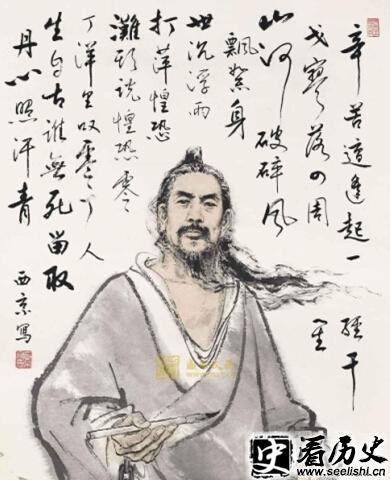 辛苦遭逢起一經干
戈寥落四周星
山河破碎風
飄絮身
世沉浮雨
打萍惶恐
灘頭説惶恐零
丁洋里叹零丁人
生自古誰無死留取
丹心照汗青
西京寫
史看历史
www.seelishi.cn